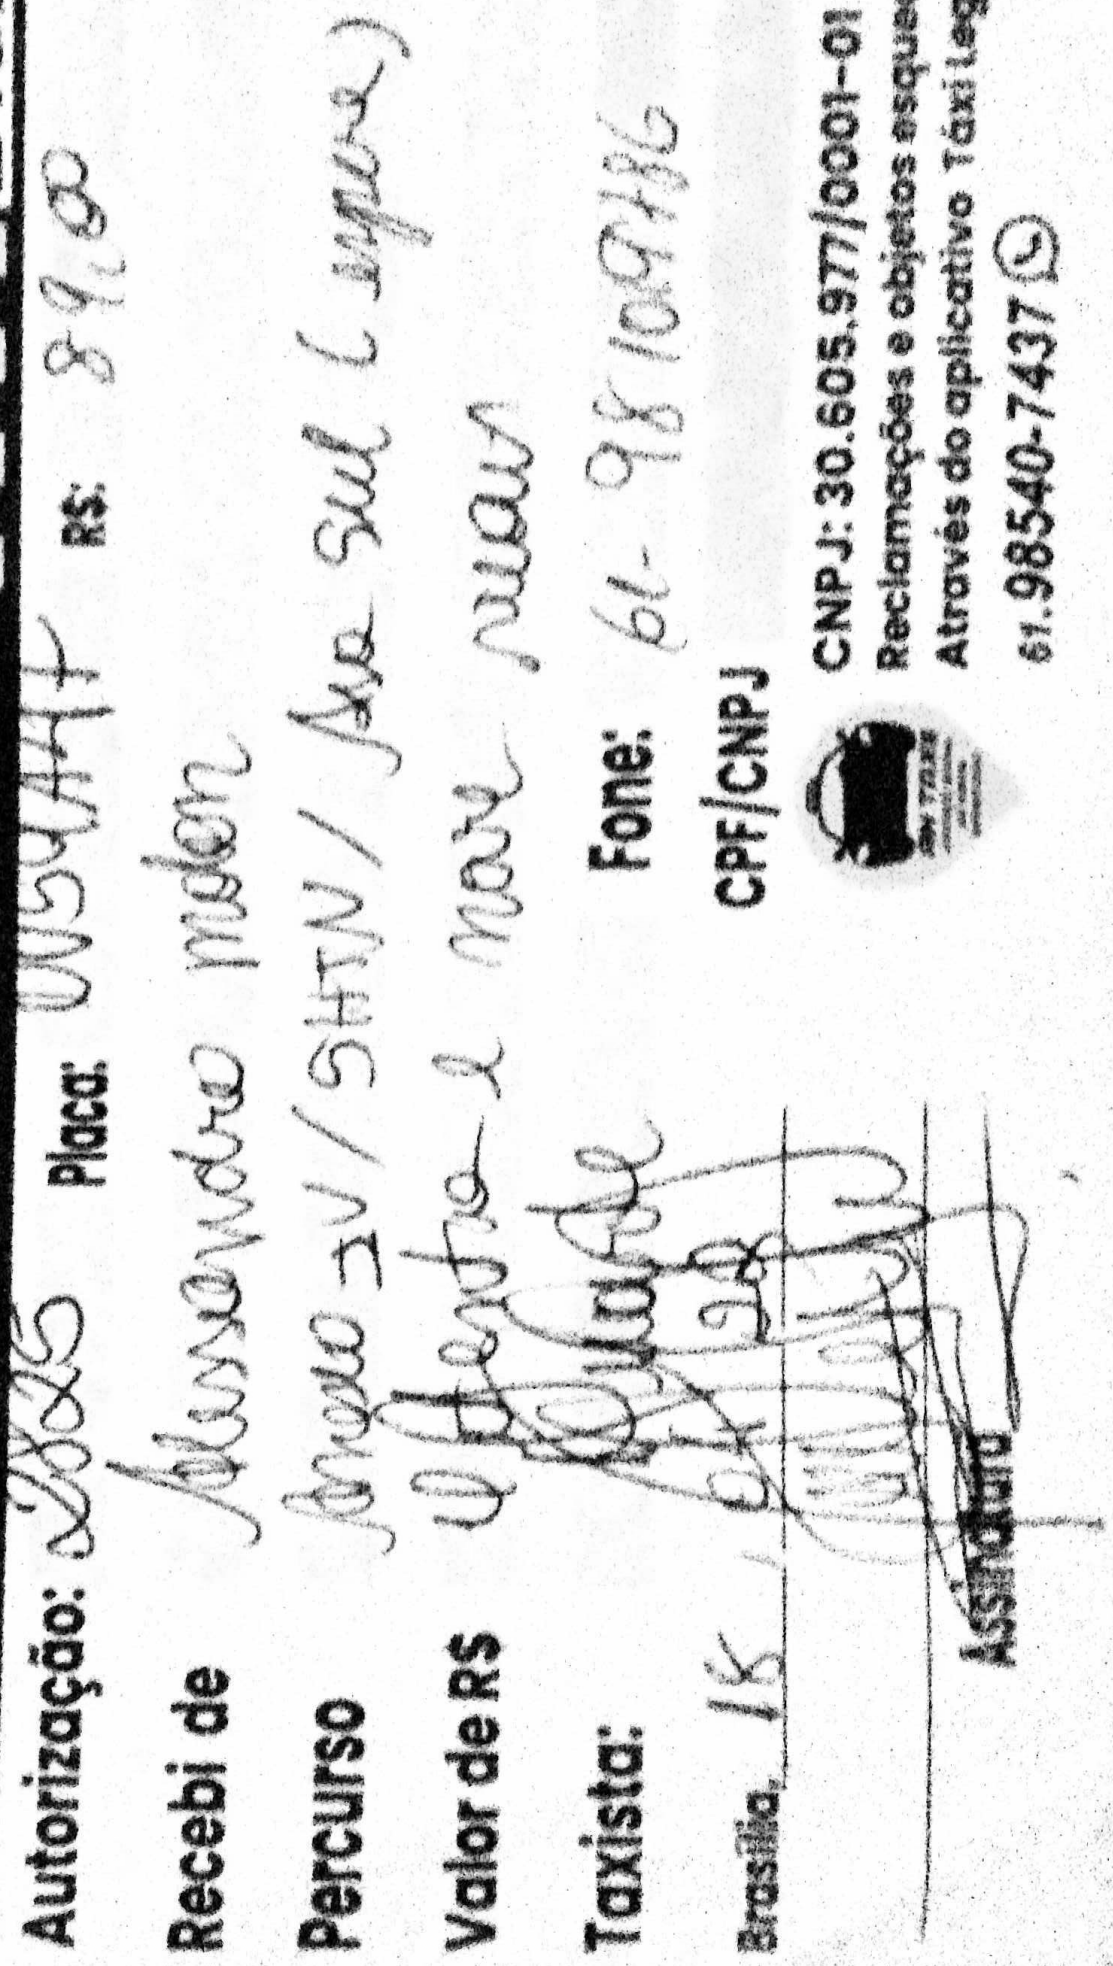 Autorização: 2825 Placa: RS: 89,00
Recebi de Alessandro molon
Percurso Anexo IV / SHTN / Asa Sul (espera)
Valor de RS oitenta e nove reais
Taxista: Fone: 61-98109486
Brasília, 18 CPF/CNPJ
Assinatura
CNPJ: 30.605.977/0001-01
Reclamações e objetos esque
Através do aplicativo Táxi Leg
61.98540-7437